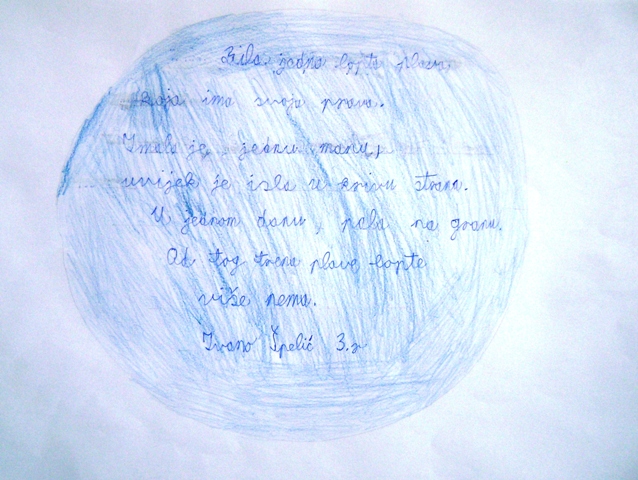 Bila jedna lopta plava
koja ima svoja prava.
Imala je, jednu manu,
uvijek je išla u krivu stranu.
U jednom danu, pala na granu.
Od tog trena plave lopte
više nema.
Ivano Špelić 3.r